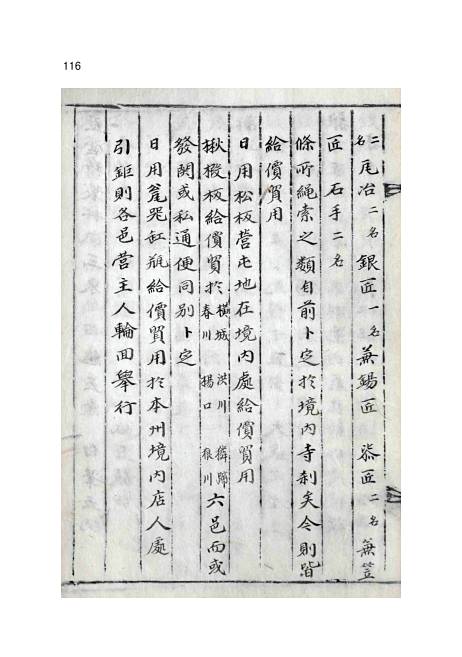 116
二名 瓦冶 二名 銀匠 一名 兼錫匠 漆匠 二名 兼笠
匠 石手 二名
條所繩索之類自前卜定於境內寺刹矣今則皆
給價貿用
日用松板營屯地在境內處給價貿用
楸椴板給價貿於 橫城 洪川 麟蹄 春川 楊口 狼川 六邑而或
發關或私通便同別卜定
日用瓮器缸瓶給價貿用於本州境內店人處
引鉅則各邑營主人輪回擧行